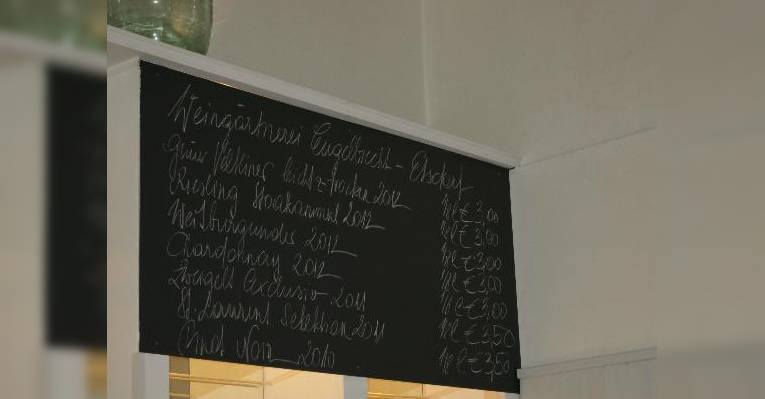 Weingärtnerei Engelbrecht - Etsdorf
Grüner Veltliner leicht & trocken 2012 1/8l € 3,00
Riesling 2012 1/8l € 3,00
Weißburgunder 2012 1/8l € 3,00
Chardonnay 2012 1/8l € 3,00
Zweigelt Exclusiv 2011 1/8l € 3,00
St. Laurent Selektion 2011 1/8l € 3,50
Pinot Noir 2010 1/8l € 3,50